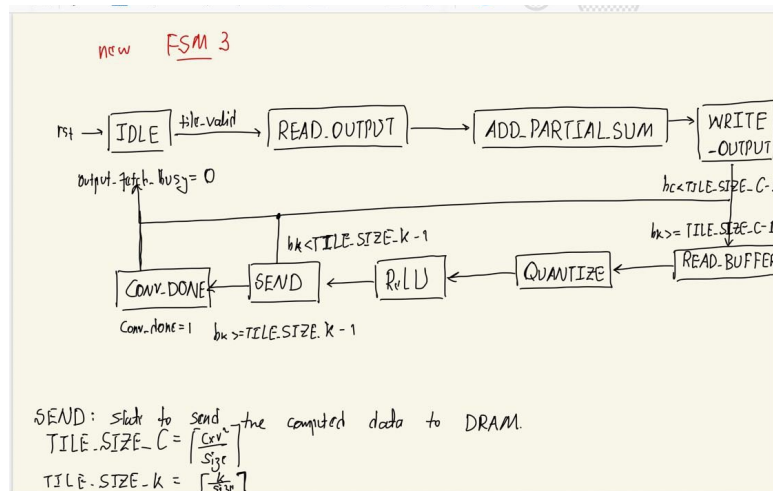 new FSM 3
rst IDLE tile_valid READ_OUTPUT ADD_PARTIAL_SUM WRITE
_OUTPUT
output_fetch_busy = 0
bc<TILE_SIZE_C-
bk<TILE_SIZE_k-1
bk>= TILE_SIZE_C-1
CONV_DONE SEND ReLU QUANTIZE READ_BUFFER
Conv_done=1
bk>=TILE_SIZE_k-1
SEND: state to send the computed data to DRAM.
TILE_SIZE_C = ⌈cxr²/size⌉
TILE_SIZE_k = ⌈k/size⌉